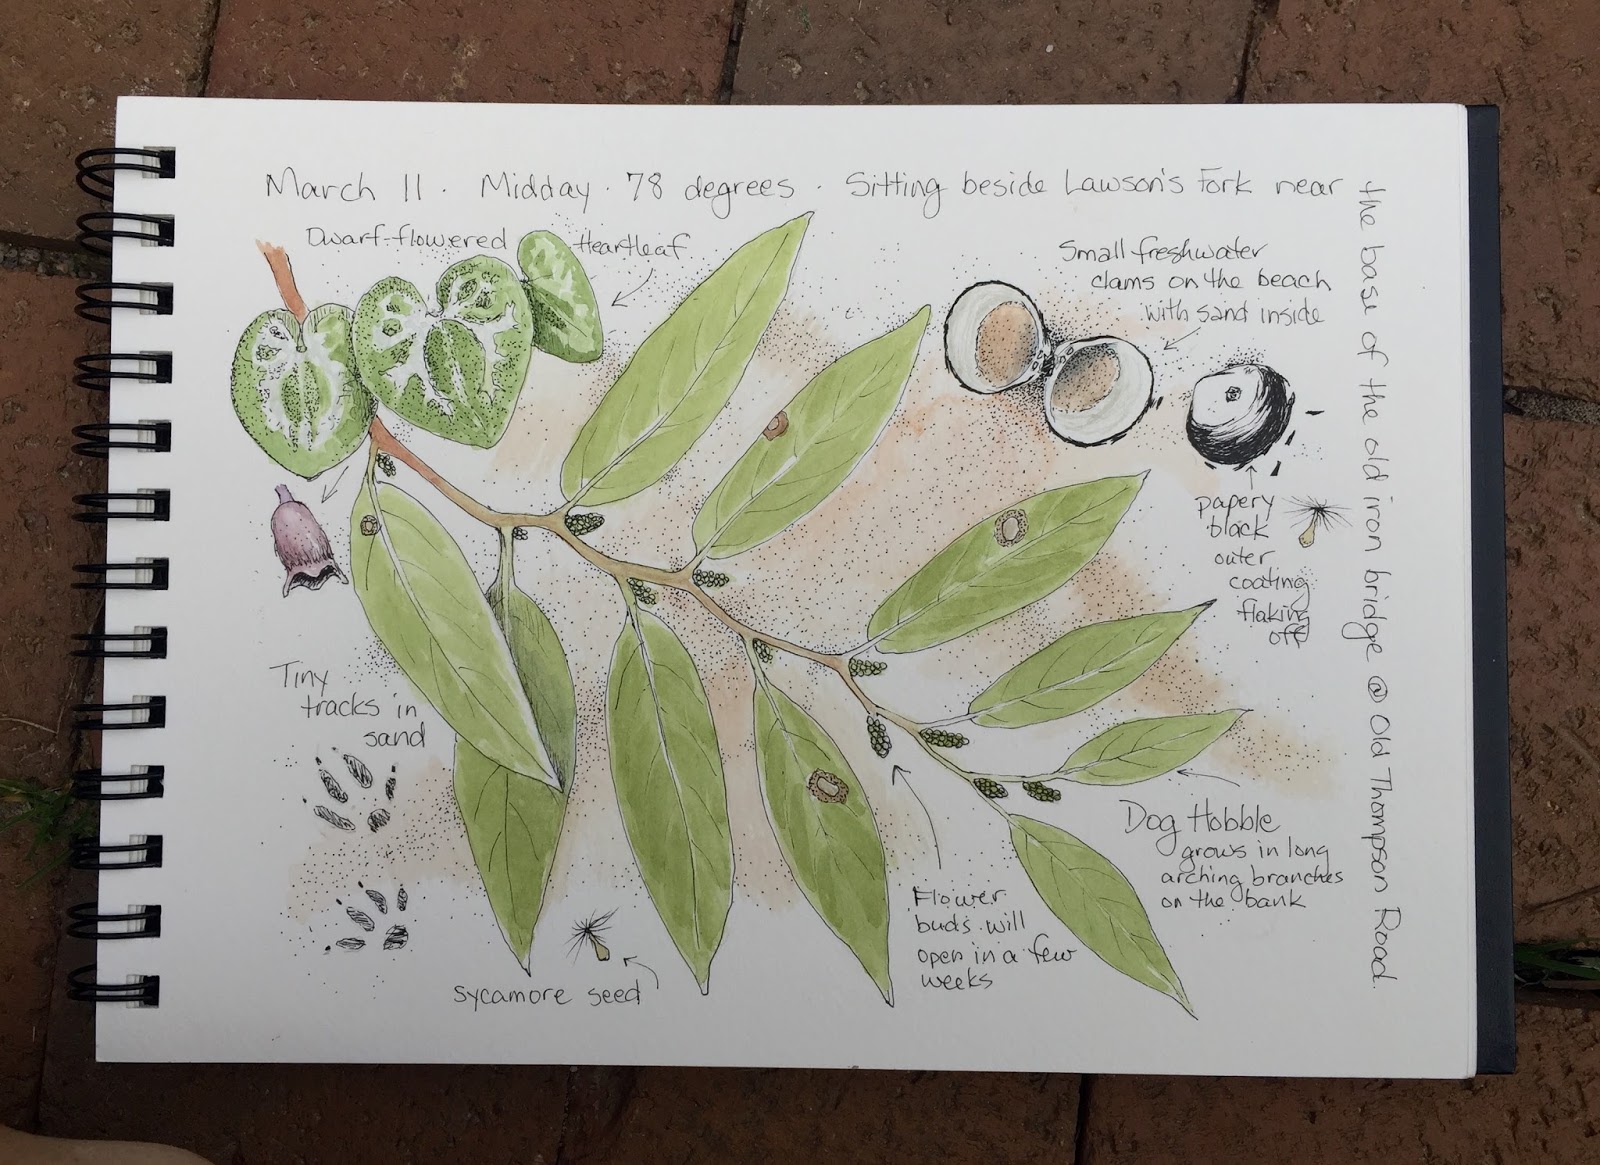 March 11 · Midday · 78 degrees · Sitting beside Lawson's Fork near
the base of the old iron bridge @ Old Thompson Road.
Dwarf-flowered Heartleaf
Small freshwater
clams on the beach
with sand inside
papery
black
outer
coating
flaking
off
Tiny
tracks in
sand
Dog Hobble
grows in long
arching branches
on the bank
Flower
buds will
open in a few
weeks
Sycamore seed